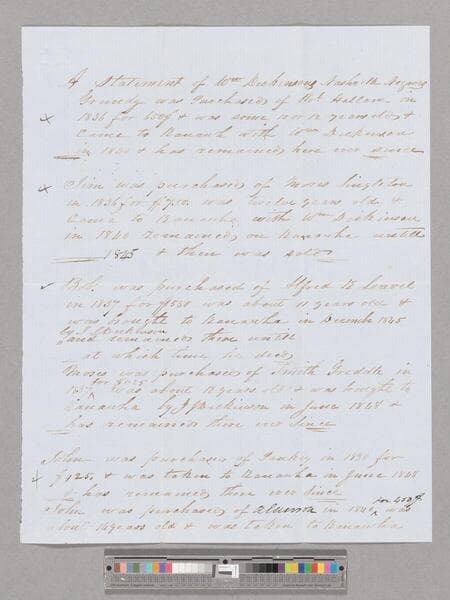 A Statement of Wm Dickinsons Nashville Negroes
Grundy was Purchased of
1836 for 600$ & was some 10 or 12 years old &
Came to Kanawha with Wm Dickinson
in 1840 & has remained here ever since
Jim was purchased of Moses Singleton
in 1836 for $750 was twelve years old &
Came to Kanawha with Wm Dickinson
in 1840 remained on Kanawha untill
1845 & then was sold
Bob was purchased of Alfred B
in 1837 for $550 was about 11 years old &
was brought to Kanawha in Decemb 1845
by J J Dickinson
and remained there untill
at which time he died
Moses was purchased of Smith Griddle in
for $625
was about 12 years old & was brought to
Kanawha by J J Dickinson in June 1848 &
has remained there ever Since
John was purchased of in for
& was taken to Kanawha in June 1848
& has remained there ever since
for 450$
John was purchased of in was
about 14 years old & was taken to Kanawha